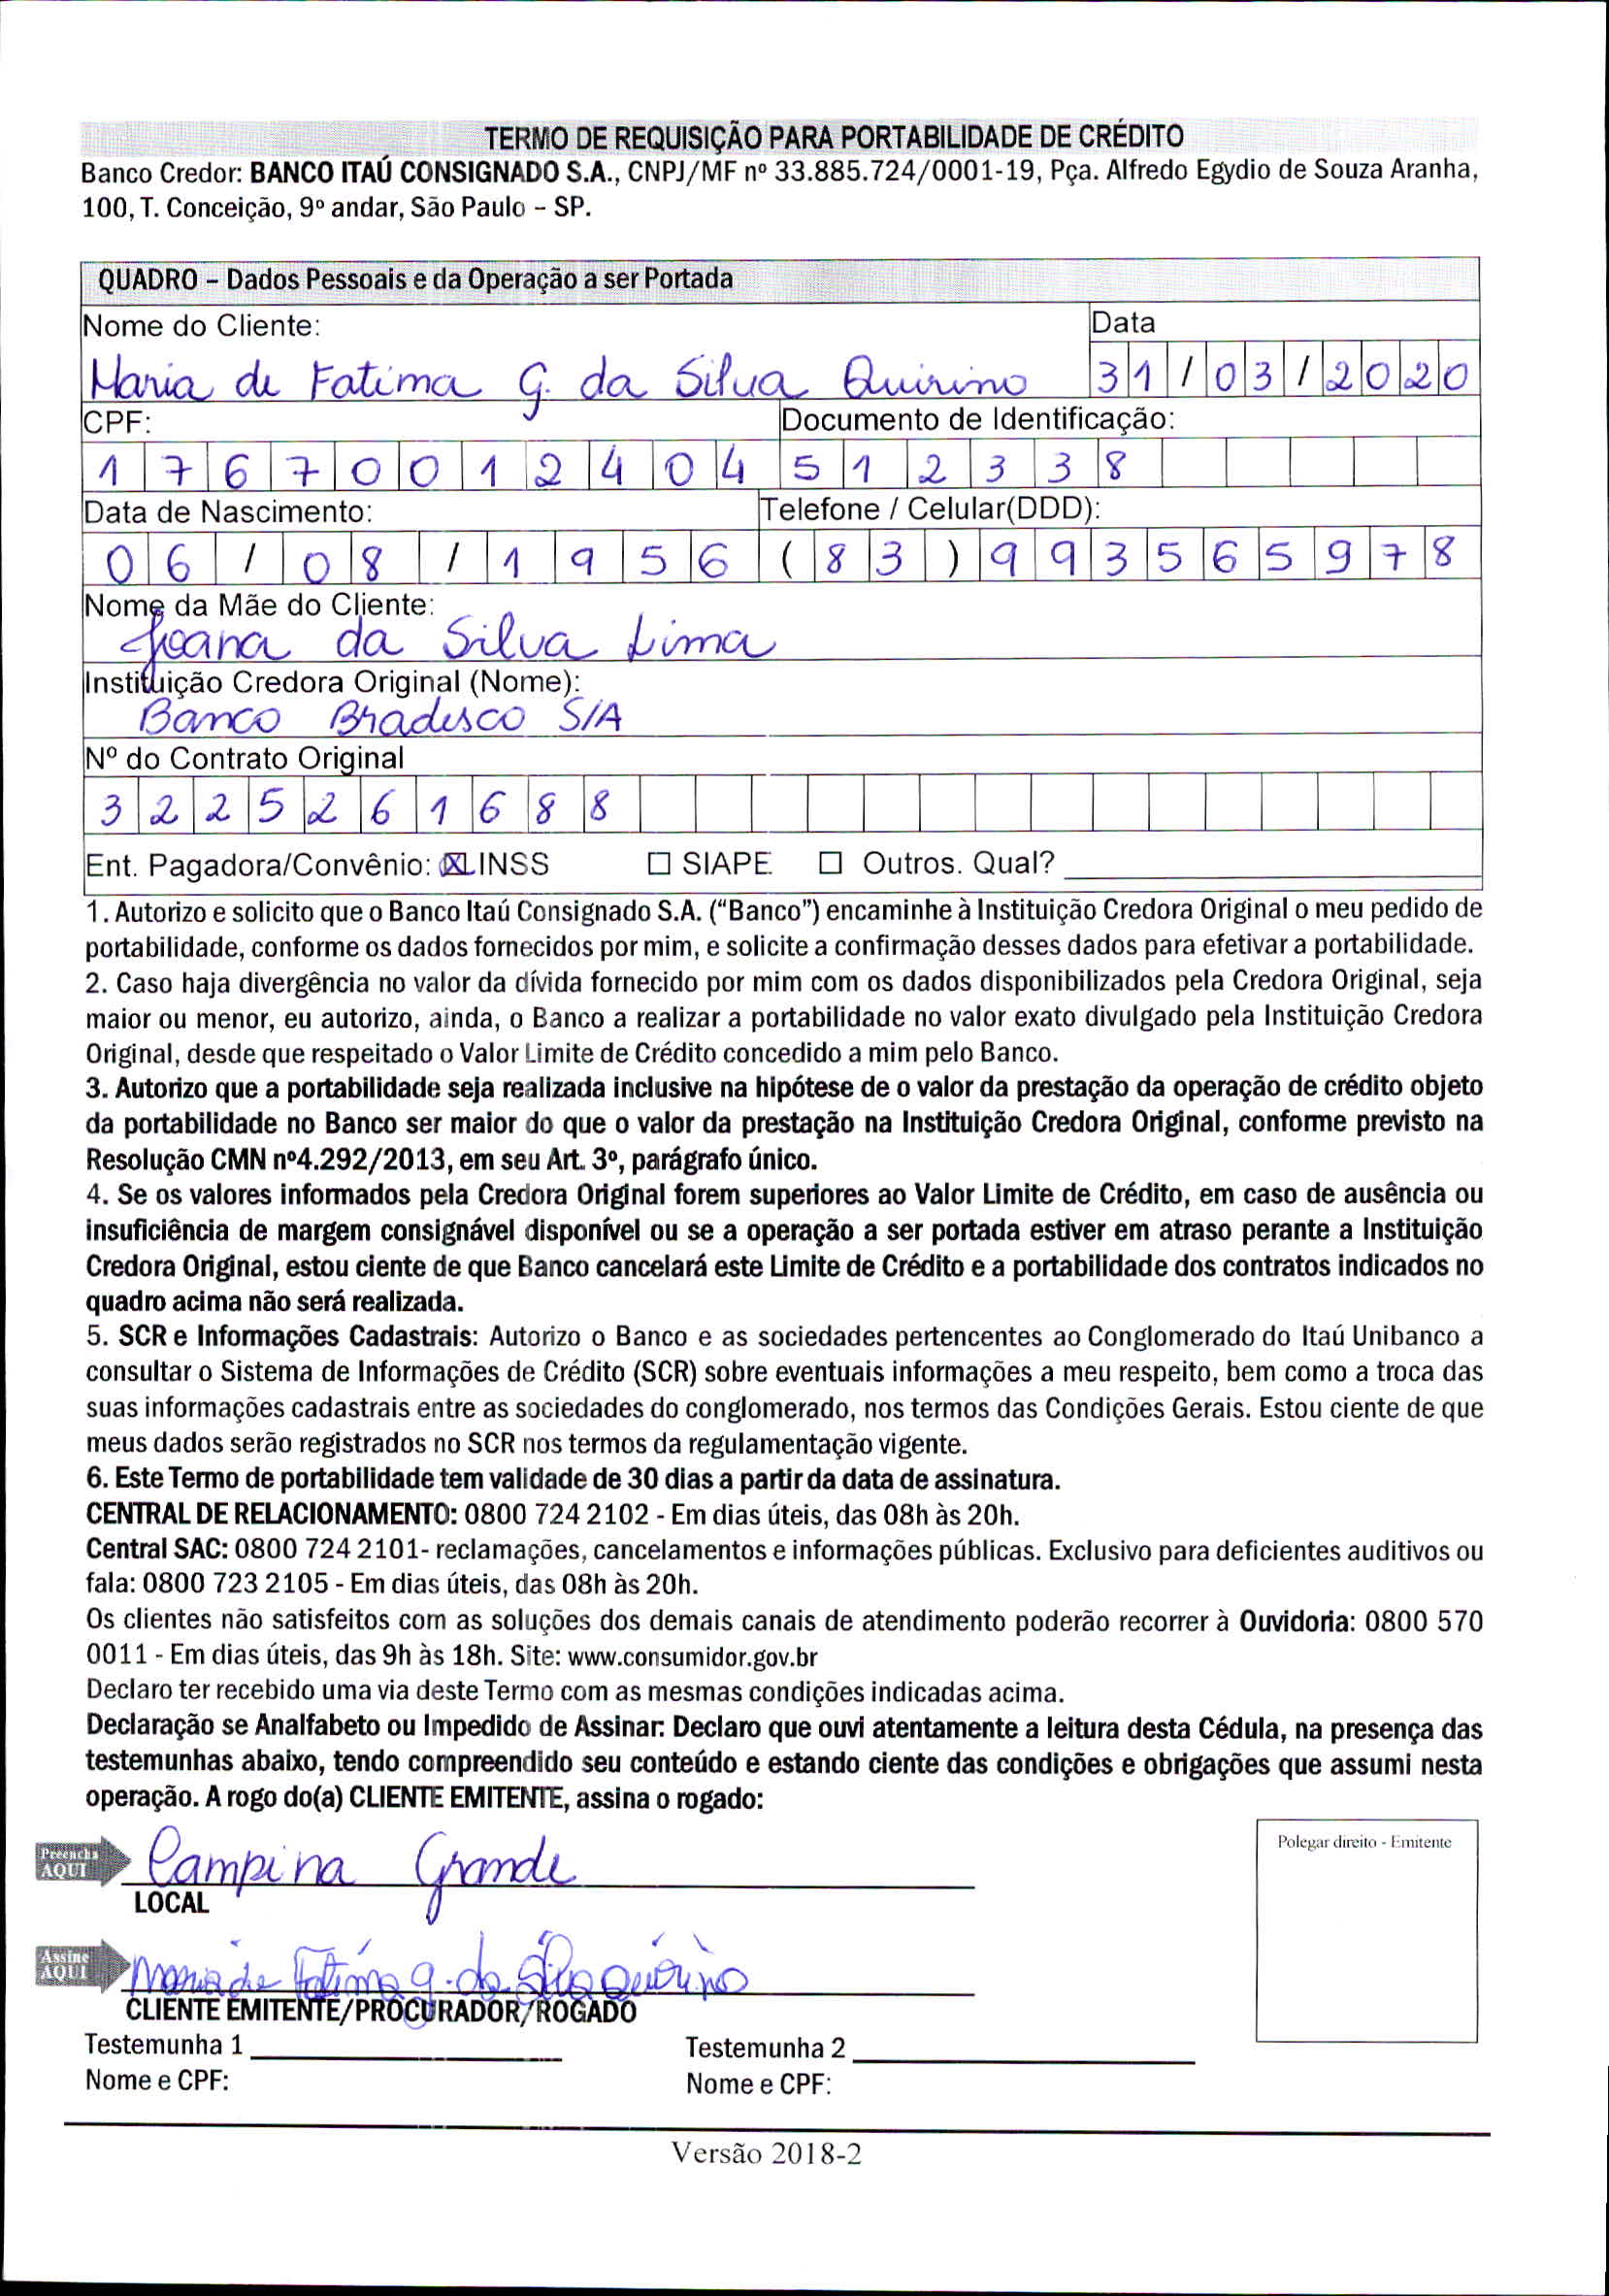 TERMO DE REQUISIÇÃO PARA PORTABILIDADE DE CRÉDITO
Banco Credor: BANCO ITAÚ CONSIGNADO S.A., CNPJ/MF nº 33.885.724/0001-19, Pça. Alfredo Egydio de Souza Aranha,
100, T. Conceição, 9º andar, São Paulo – SP.
QUADRO – Dados Pessoais e da Operação a ser Portada
Nome do Cliente: Data
Maria de Fatima G. da Silva Quirino 31/03/2020
CPF: Documento de Identificação:
17670012404 512338
Data de Nascimento: Telefone / Celular(DDD):
06/08/1956 (83)993565978
Nome da Mãe do Cliente:
Joana da Silva Lima
Instituição Credora Original (Nome):
Banco Bradesco S/A
Nº do Contrato Original
3225261688
Ent. Pagadora/Convênio: ☒ INSS ☐ SIAPE ☐ Outros. Qual?
1. Autorizo e solicito que o Banco Itaú Consignado S.A. (“Banco”) encaminhe à Instituição Credora Original o meu pedido de
portabilidade, conforme os dados fornecidos por mim, e solicite a confirmação desses dados para efetivar a portabilidade.
2. Caso haja divergência no valor da dívida fornecido por mim com os dados disponibilizados pela Credora Original, seja
maior ou menor, eu autorizo, ainda, o Banco a realizar a portabilidade no valor exato divulgado pela Instituição Credora
Original, desde que respeitado o Valor Limite de Crédito concedido a mim pelo Banco.
3. Autorizo que a portabilidade seja realizada inclusive na hipótese de o valor da prestação da operação de crédito objeto
da portabilidade no Banco ser maior do que o valor da prestação na Instituição Credora Original, conforme previsto na
Resolução CMN nº4.292/2013, em seu Art. 3º, parágrafo único.
4. Se os valores informados pela Credora Original forem superiores ao Valor Limite de Crédito, em caso de ausência ou
insuficiência de margem consignável disponível ou se a operação a ser portada estiver em atraso perante a Instituição
Credora Original, estou ciente de que Banco cancelará este Limite de Crédito e a portabilidade dos contratos indicados no
quadro acima não será realizada.
5. SCR e Informações Cadastrais: Autorizo o Banco e as sociedades pertencentes ao Conglomerado do Itaú Unibanco a
consultar o Sistema de Informações de Crédito (SCR) sobre eventuais informações a meu respeito, bem como a troca das
suas informações cadastrais entre as sociedades do conglomerado, nos termos das Condições Gerais. Estou ciente de que
meus dados serão registrados no SCR nos termos da regulamentação vigente.
6. Este Termo de portabilidade tem validade de 30 dias a partir da data de assinatura.
CENTRAL DE RELACIONAMENTO: 0800 724 2102 - Em dias úteis, das 08h às 20h.
Central SAC: 0800 724 2101- reclamações, cancelamentos e informações públicas. Exclusivo para deficientes auditivos ou
fala: 0800 723 2105 - Em dias úteis, das 08h às 20h.
Os clientes não satisfeitos com as soluções dos demais canais de atendimento poderão recorrer à Ouvidoria: 0800 570
0011 - Em dias úteis, das 9h às 18h. Site: www.consumidor.gov.br
Declaro ter recebido uma via deste Termo com as mesmas condições indicadas acima.
Declaração se Analfabeto ou Impedido de Assinar: Declaro que ouvi atentamente a leitura desta Cédula, na presença das
testemunhas abaixo, tendo compreendido seu conteúdo e estando ciente das condições e obrigações que assumi nesta
operação. A rogo do(a) CLIENTE EMITENTE, assina o rogado:
Polegar direito - Emitente
Preencha
AQUI
Campina Grande
LOCAL
Assine
AQUI
Maria de Fatima g. da Silva Quirino
CLIENTE EMITENTE/PROCURADOR/ROGADO
Testemunha 1 Testemunha 2
Nome e CPF: Nome e CPF:
Versão 2018-2